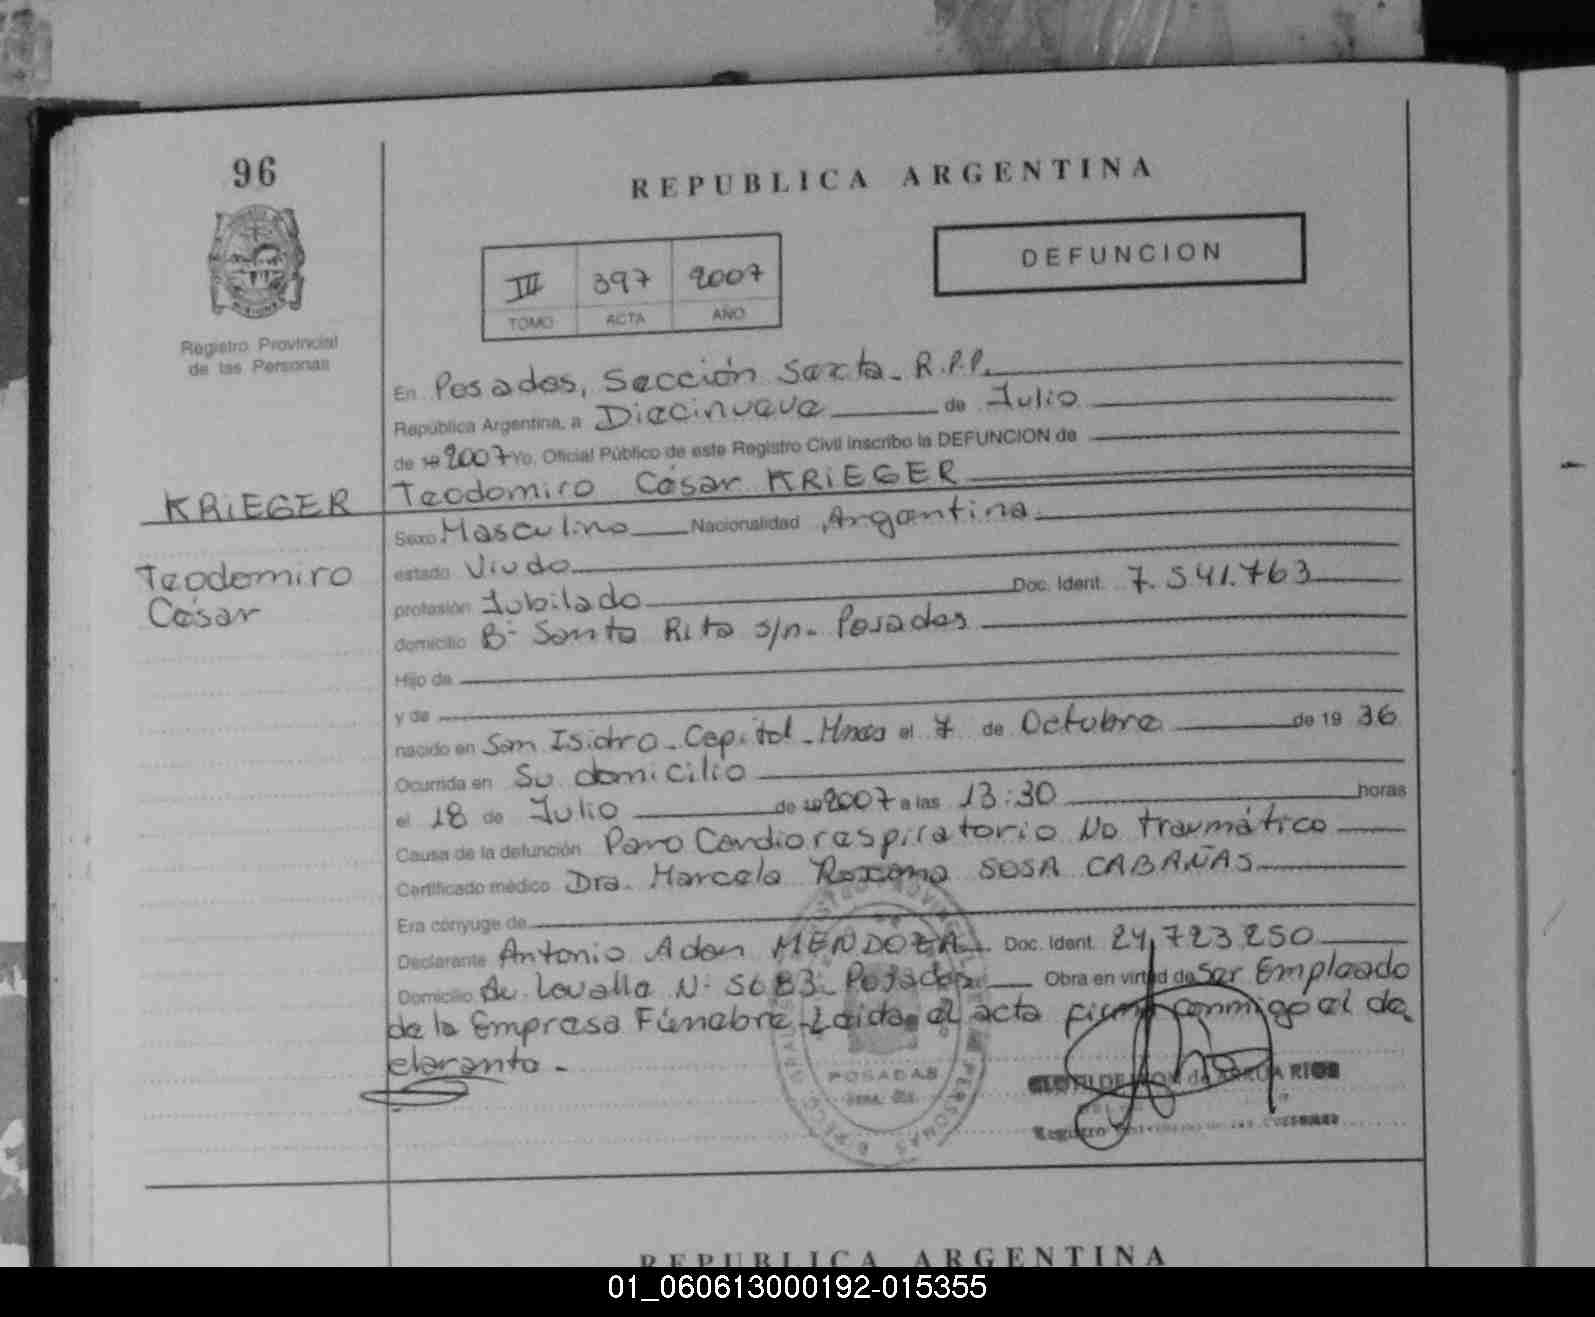 96
REPUBLICA ARGENTINA
DEFUNCION
III 397 2007
TOMO ACTA AÑO
Registro Provincial
de las Personas
En Posadas, Sección Sexta. R.P.P.
República Argentina, a Diecinueve de Julio
de 19 2007 Yo, Oficial Público de este Registro Civil inscribo la DEFUNCION de
KRIEGER Teodomiro César KRIEGER
Sexo Masculino Nacionalidad Argentina
Teodomiro estado Viudo
César profesión Jubilado Doc. Ident. 7.541.763
domicilio Bº Santa Rita s/n. Posadas
Hijo de
y de
nacido en San Isidro - Capital - Mnes el 7 de Octubre de 19 36
Ocurrida en Su domicilio
el 18 de Julio de 19 2007 a las 13:30 horas
Causa de la defunción Paro Cardiorespiratorio No traumático
Certificado médico Dra. Marcela Roxana SOSA CABAÑAS
Era cónyuge de
Declarante Antonio Adan MENDOZA Doc. Ident. 24.723.250
Domicilio Av. Lavalle Nº 5683. Posadas Obra en virtud de Ser Empleado
de la Empresa Fúnebre - Leida el acta firma conmigo el de
clarante -
POSADAS
REPUBLICA ARGENTINA
01_060613000192-015355